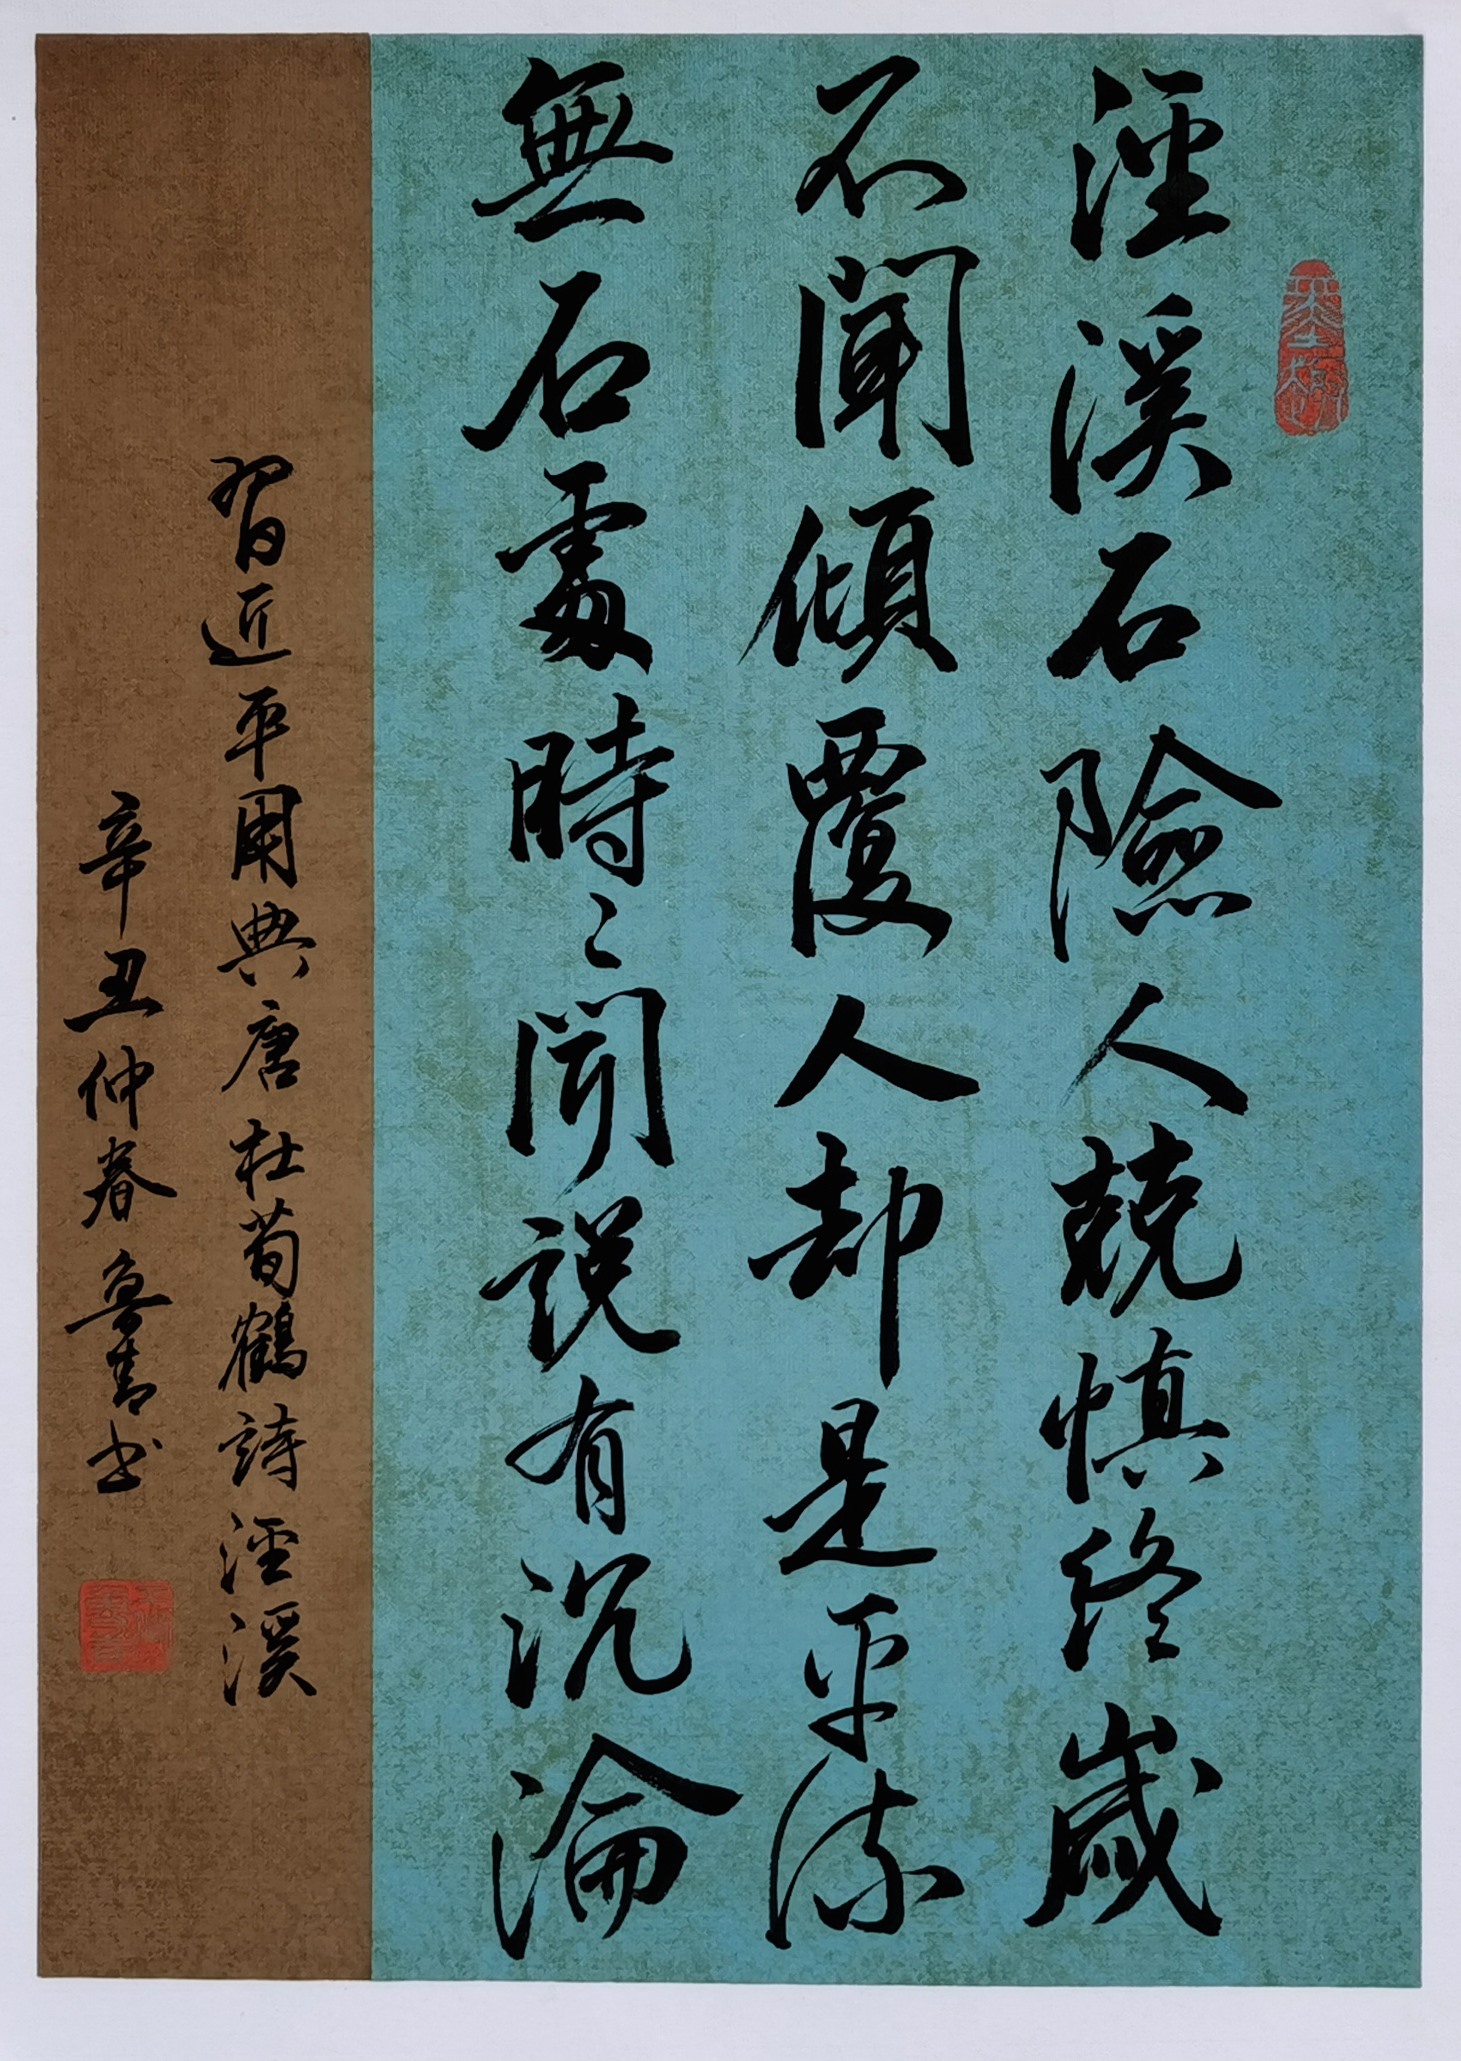 涇溪石險人兢慎終歲
不聞傾覆人却是平流
無石處時〻聞説有沉淪
習近平用典唐杜荀鶴詩涇溪
辛丑仲春魯青书